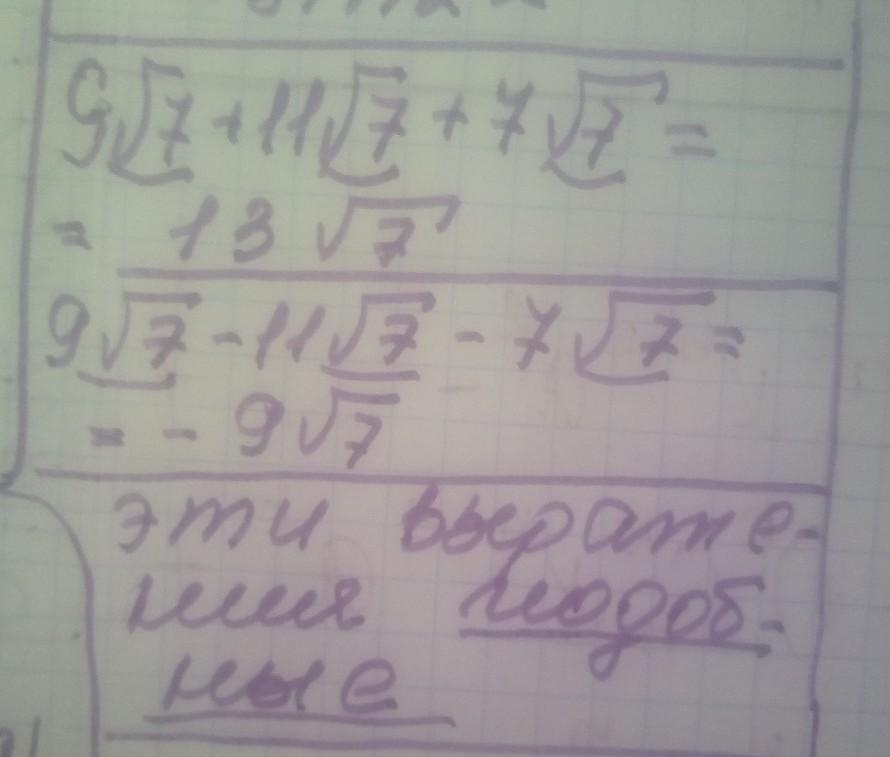 9√7 + 11√7 + 7√7 =
= 13 √7
9√7 - 11√7 - 7√7 =
= - 9√7
эти выраже-
ния подоб-
ные